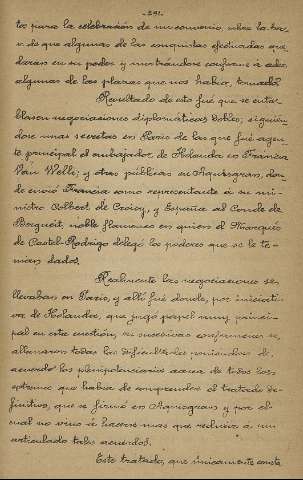 -291-
tos para la celebración de un convenio, sobre la ba-
se de que algunas de las conquistas efectuadas que-
daran en su poder y mostrándose conforme a ceder
algunas de las plazas que nos había tomado.
Resultado de esto fué que se enta-
blasen negociaciones diplomáticas dobles; siguién-
dose unas secretas en París de las que fué agen-
te principal el embajador de Holanda en Francia
Van Welle; y otras públicas en Aquisgran, don-
de envió Francia como representante á su mi-
nistro Colbert de Croissy, y España al Conde de
Bergeik, noble flamenco en quien el Marqués
de Castel-Rodrigo delegó los poderes que se le te-
nían dados.
Realmente las negociaciones se
llevaban en París, y allí fué donde, por iniciati-
va de Holanda, que jugó papel muy princi-
pal en esta cuestión, en sucesivas conferencias se
allanaron todas las dificultades poniéndose de
acuerdo los plenipotenciarios acerca de todos los
extremos que había de comprender el tratado de-
finitivo, que se firmó en Aquisgran y por el
cual no vino á hacerse mas que reducir á un
articulado tales acuerdos.
Este tratado, que únicamente consta